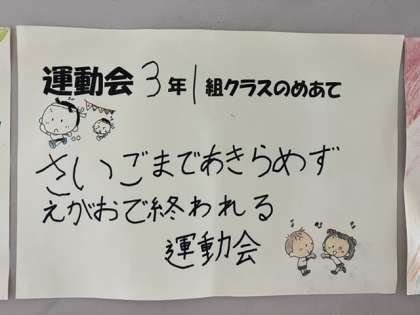 運動会3年1組クラスのめあて
さいごまであきらめず
えがおで終われる
運動会